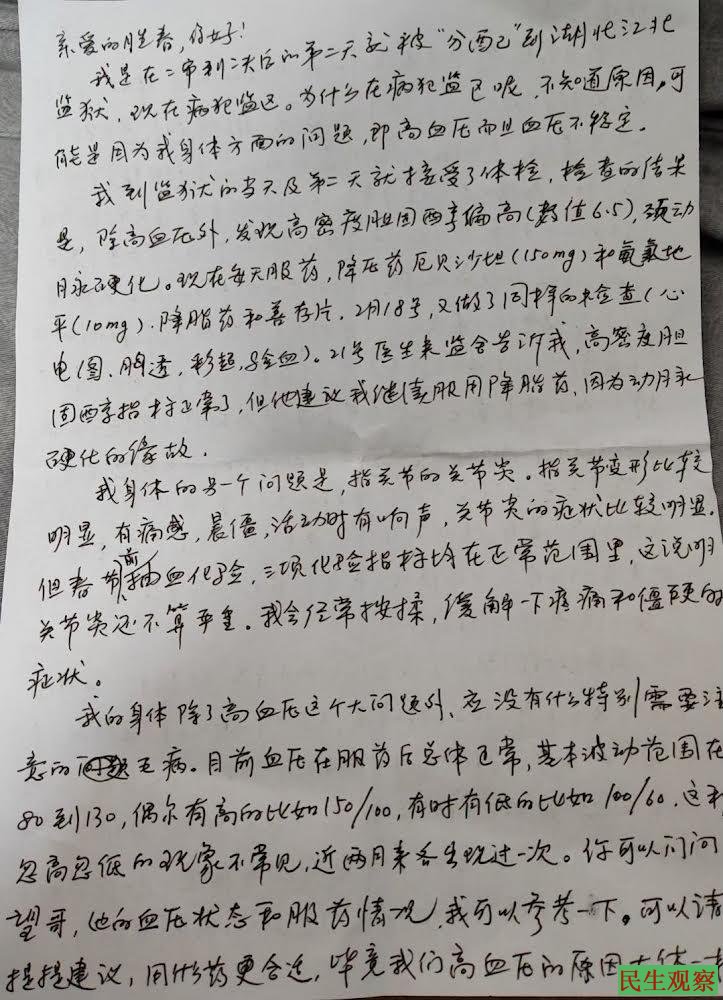 亲爱的胜春,你好!
我是在二审判决后的第二天就被“分配”到湖北江北
监狱,现在病犯监区。为什么在病犯监区呢,不知道原因,可
能是因为我身体方面的问题,即高血压而且血压不稳定.
我到监狱的当天及第二天就接受了体检,检查的结果
是,除高血压外,发现高密度胆固醇偏高(数值6.5),颈动
脉硬化。现在每天服药,降压药厄贝沙坦(150mg)和氨氯地
平(10mg).降脂药和善存片.2月18号,又做了同样的检查(心
电图、胸透,彩超,验血)。21号医生来监舍告诉我,高密度胆
固醇指标正常了,但他建议我继续服用降脂药,因为动脉
硬化的缘故.
我身体的另一个问题是,指关节的关节炎。指关节变形比较
明显,有痛感,晨僵,活动时有响声,关节炎的症状比较明显.
但春节前抽血化验,三项化验指标均在正常范围里,这说明
关节炎还不算严重。我会经常按揉,缓解一下疼痛和僵硬的
症状。
我的身体除了高血压这个大问题外、应没有什么特别需要注
意的毛病。目前血压在服药后总体正常,基本波动范围在
80到130,偶尔有高的比如150/100,有时有低的比如100/60,这种
忽高忽低的现象不常见,近两月来各出现过一次。你可以问问
望哥,他的血压状态和服药情况,我可以参考一下。可以请
提提建议,用什么药更合适,毕竟我们高血压的原因大体一
民生观察